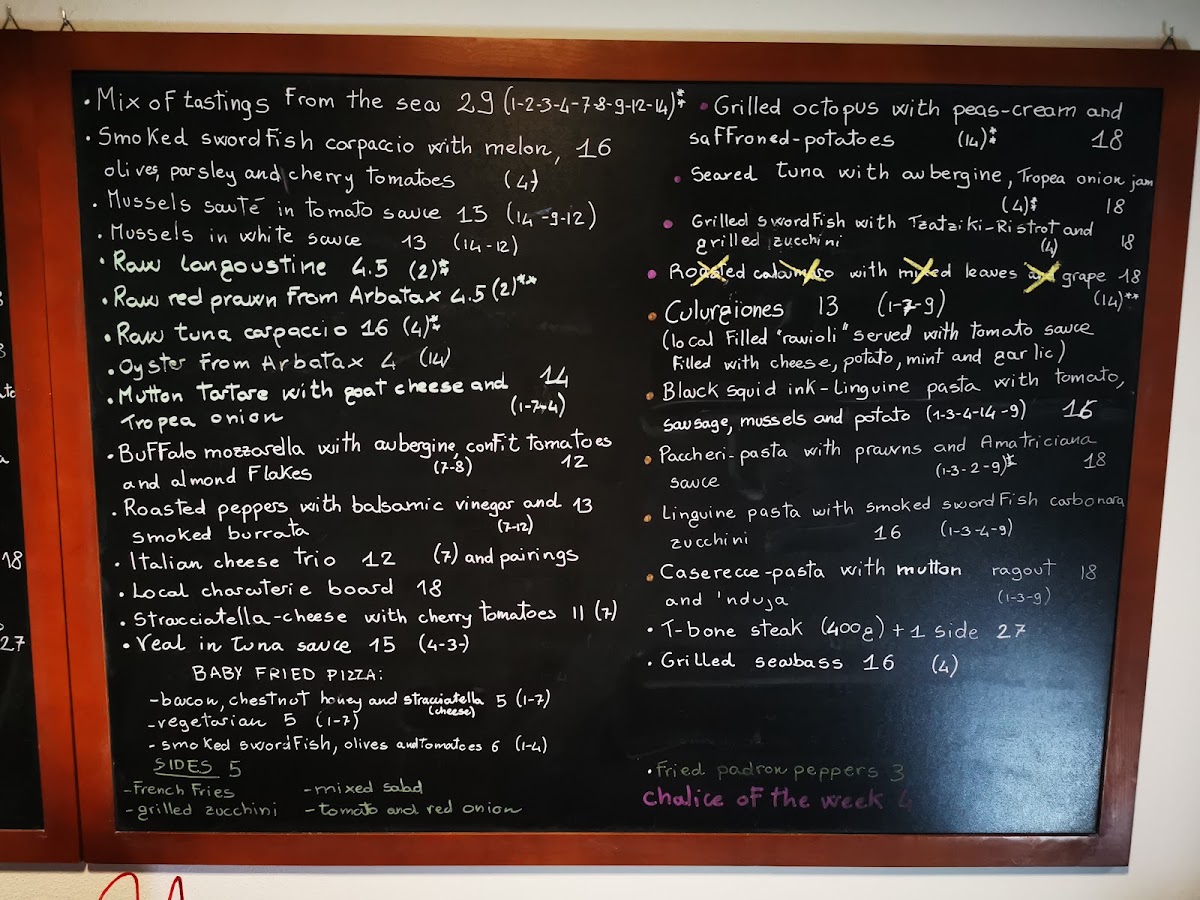 • Mix of tastings From the sea 29 (1-2-3-4-7-8-9-12-14)**
• Smoked swordFish carpaccio with melon, 16
olives, parsley and cherry tomatoes (4)
• Mussels sauté in tomato sauce 15 (14-9-12)
• Mussels in white sauce 13 (14-12)
• Raw langoustine 4.5 (2)**
• Raw red prawn From Arbatax 4.5 (2)**
• Raw tuna carpaccio 16 (4)**
• Oyster From Arbatax 4 (14)
• Mutton Tartare with goat cheese and 14
Tropea onion (1-7-4)
• BuFFalo mozzarella with aubergine, conFit tomatoes
and almond Flakes (7-8) 12
• Roasted peppers with balsamic vinegar and 13
smoked burrata (7-12)
• Italian cheese trio 12 (7) and pairings
• Local charcuterie board 18
• Stracciatella-cheese with cherry tomatoes 11 (7)
• Veal in tuna sauce 15 (4-3-)
BABY FRIED PIZZA:
-bacon, chestnut honey and stracciatella 5 (1-7)
(cheese)
-vegetarian 5 (1-7)
- smoked swordFish, olives and tomatoes 6 (1-4)
SIDES 5
-French Fries
-mixed salad
-grilled zucchini
-tomato and red onion
• Grilled octopus with peas-cream and
saFFroned-potatoes (14)** 18
• Seared tuna with aubergine, Tropea onion jam
(4)** 18
• Grilled swordFish with Tzatziki-Ristrot and
grilled zucchini (4) 18
• Roasted calamaro with mixed leaves and grape 18
(14)**
• Culurgiones 13 (1-7-9)
(local Filled "ravioli" served with tomato sauce
Filled with cheese, potato, mint and garlic)
• Black squid ink-linguine pasta with tomato,
sausage, mussels and potato (1-3-4-14-9) 16
• Paccheri-pasta with prawns and Amatriciana
sauce (1-3-2-9)** 18
• Linguine pasta with smoked swordFish carbonara
zucchini 16 (1-3-4-9)
• Caserecce-pasta with mutton ragout 18
and 'nduja (1-3-9)
• T-bone steak (400g) + 1 side 27
• Grilled seabass 16 (4)
• Fried padron peppers 3
chalice of the week 4
18
27